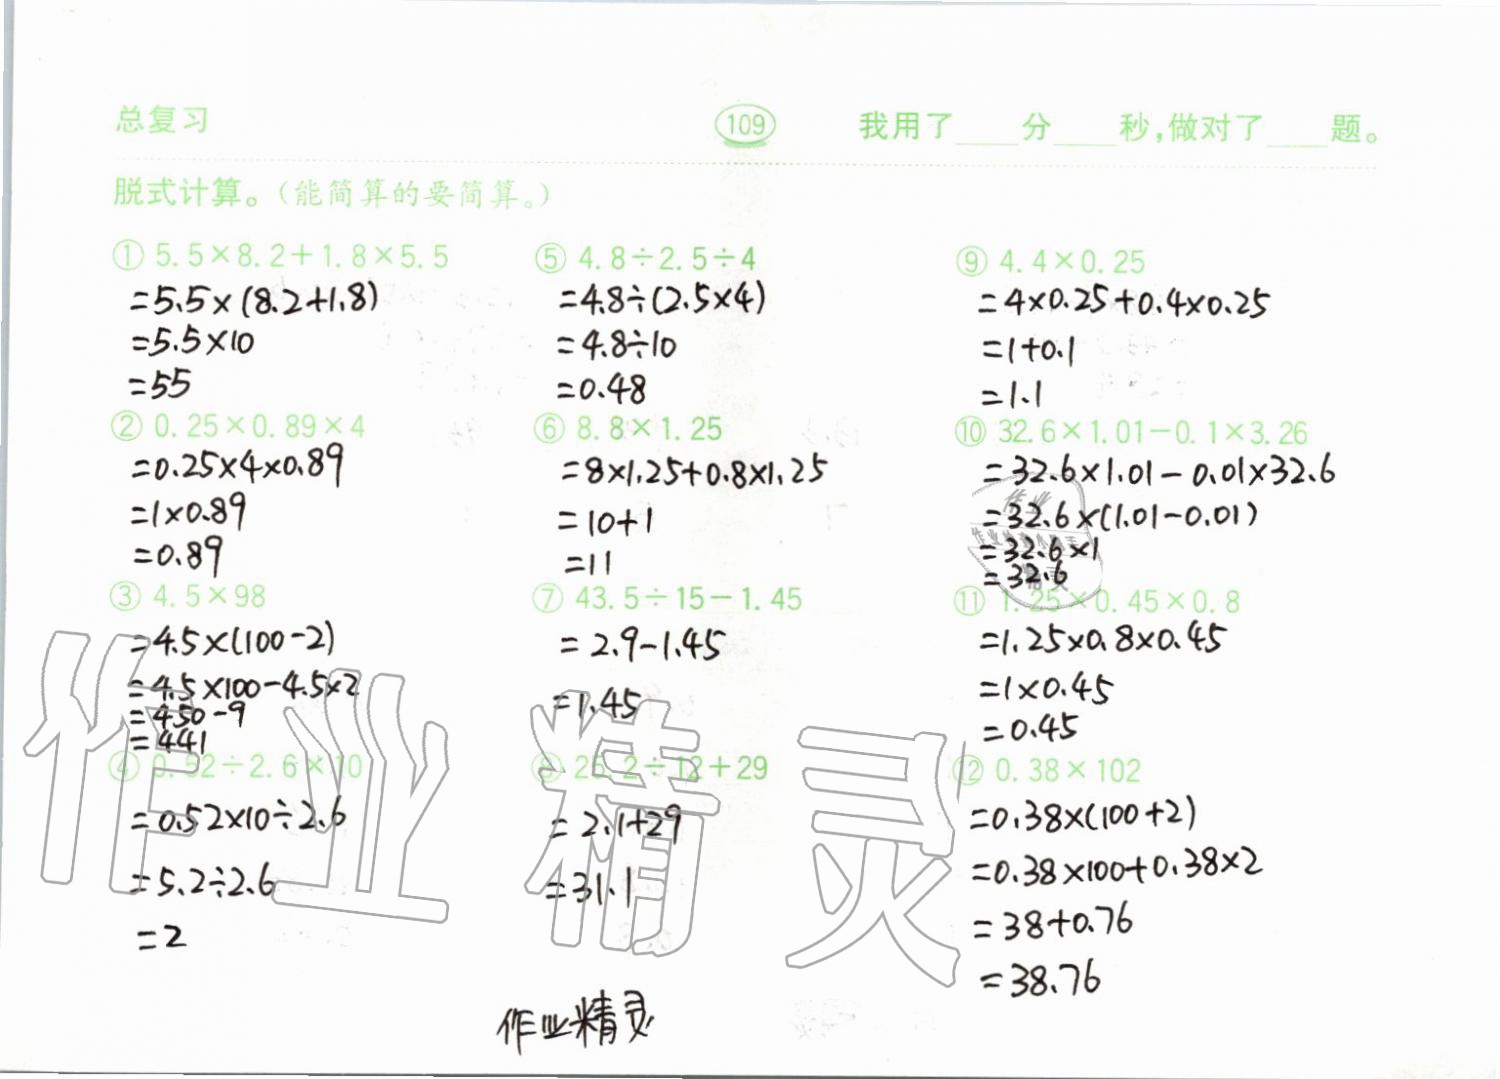 总复习
109
我用了____分____秒,做对了____题。
脱式计算。(能简算的要简算。)
① 5.5×8.2+1.8×5.5
=5.5×(8.2+1.8)
=5.5×10
=55
② 0.25×0.89×4
=0.25×4×0.89
=1×0.89
=0.89
③ 4.5×98
=4.5×(100-2)
=4.5×100-4.5×2
=450-9
=441
④ 0.52÷2.6×10
=0.52×10÷2.6
=5.2÷2.6
=2
⑤ 4.8÷2.5÷4
=4.8÷(2.5×4)
=4.8÷10
=0.48
⑥ 8.8×1.25
=8×1.25+0.8×1.25
=10+1
=11
⑦ 43.5÷15-1.45
=2.9-1.45
=1.45
⑧ 25.2÷12+29
=2.1+29
=31.1
⑨ 4.4×0.25
=4×0.25+0.4×0.25
=1+0.1
=1.1
⑩ 32.6×1.01-0.1×3.26
=32.6×1.01-0.01×32.6
=32.6×(1.01-0.01)
=32.6×1
=32.6
⑪ 1.25×0.45×0.8
=1.25×0.8×0.45
=1×0.45
=0.45
⑫ 0.38×102
=0.38×(100+2)
=0.38×100+0.38×2
=38+0.76
=38.76
作业精灵
作业精灵